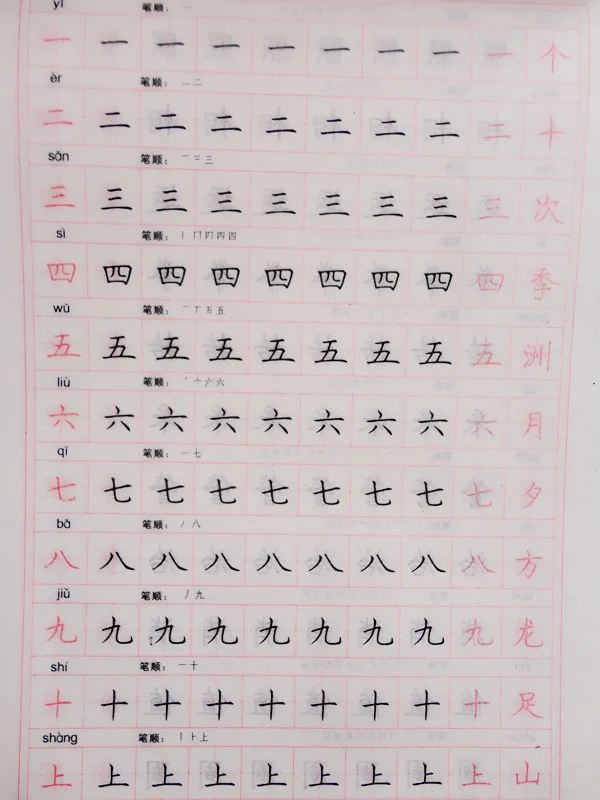 yī 笔顺： 一
一 一 一 一 一 一 一 一 一 个
èr 笔顺： 一 二
二 二 二 二 二 二 二 二 二 十
sān 笔顺： 一 二 三
三 三 三 三 三 三 三 三 三 次
sì 笔顺： 丨 冂 四 四
四 四 四 四 四 四 四 四 四 季
wǔ 笔顺： 一 丆 五 五
五 五 五 五 五 五 五 五 五 洲
liù 笔顺： 丶 亠 六 六
六 六 六 六 六 六 六 六 六 月
qī 笔顺： 一 七
七 七 七 七 七 七 七 七 七 夕
bā 笔顺： 丿 八
八 八 八 八 八 八 八 八 八 方
jiǔ 笔顺： 丿 九
九 九 九 九 九 九 九 九 九 龙
shí 笔顺： 一 十
十 十 十 十 十 十 十 十 十 足
shàng 笔顺： 丨 卜 上
上 上 上 上 上 上 上 上 上 山